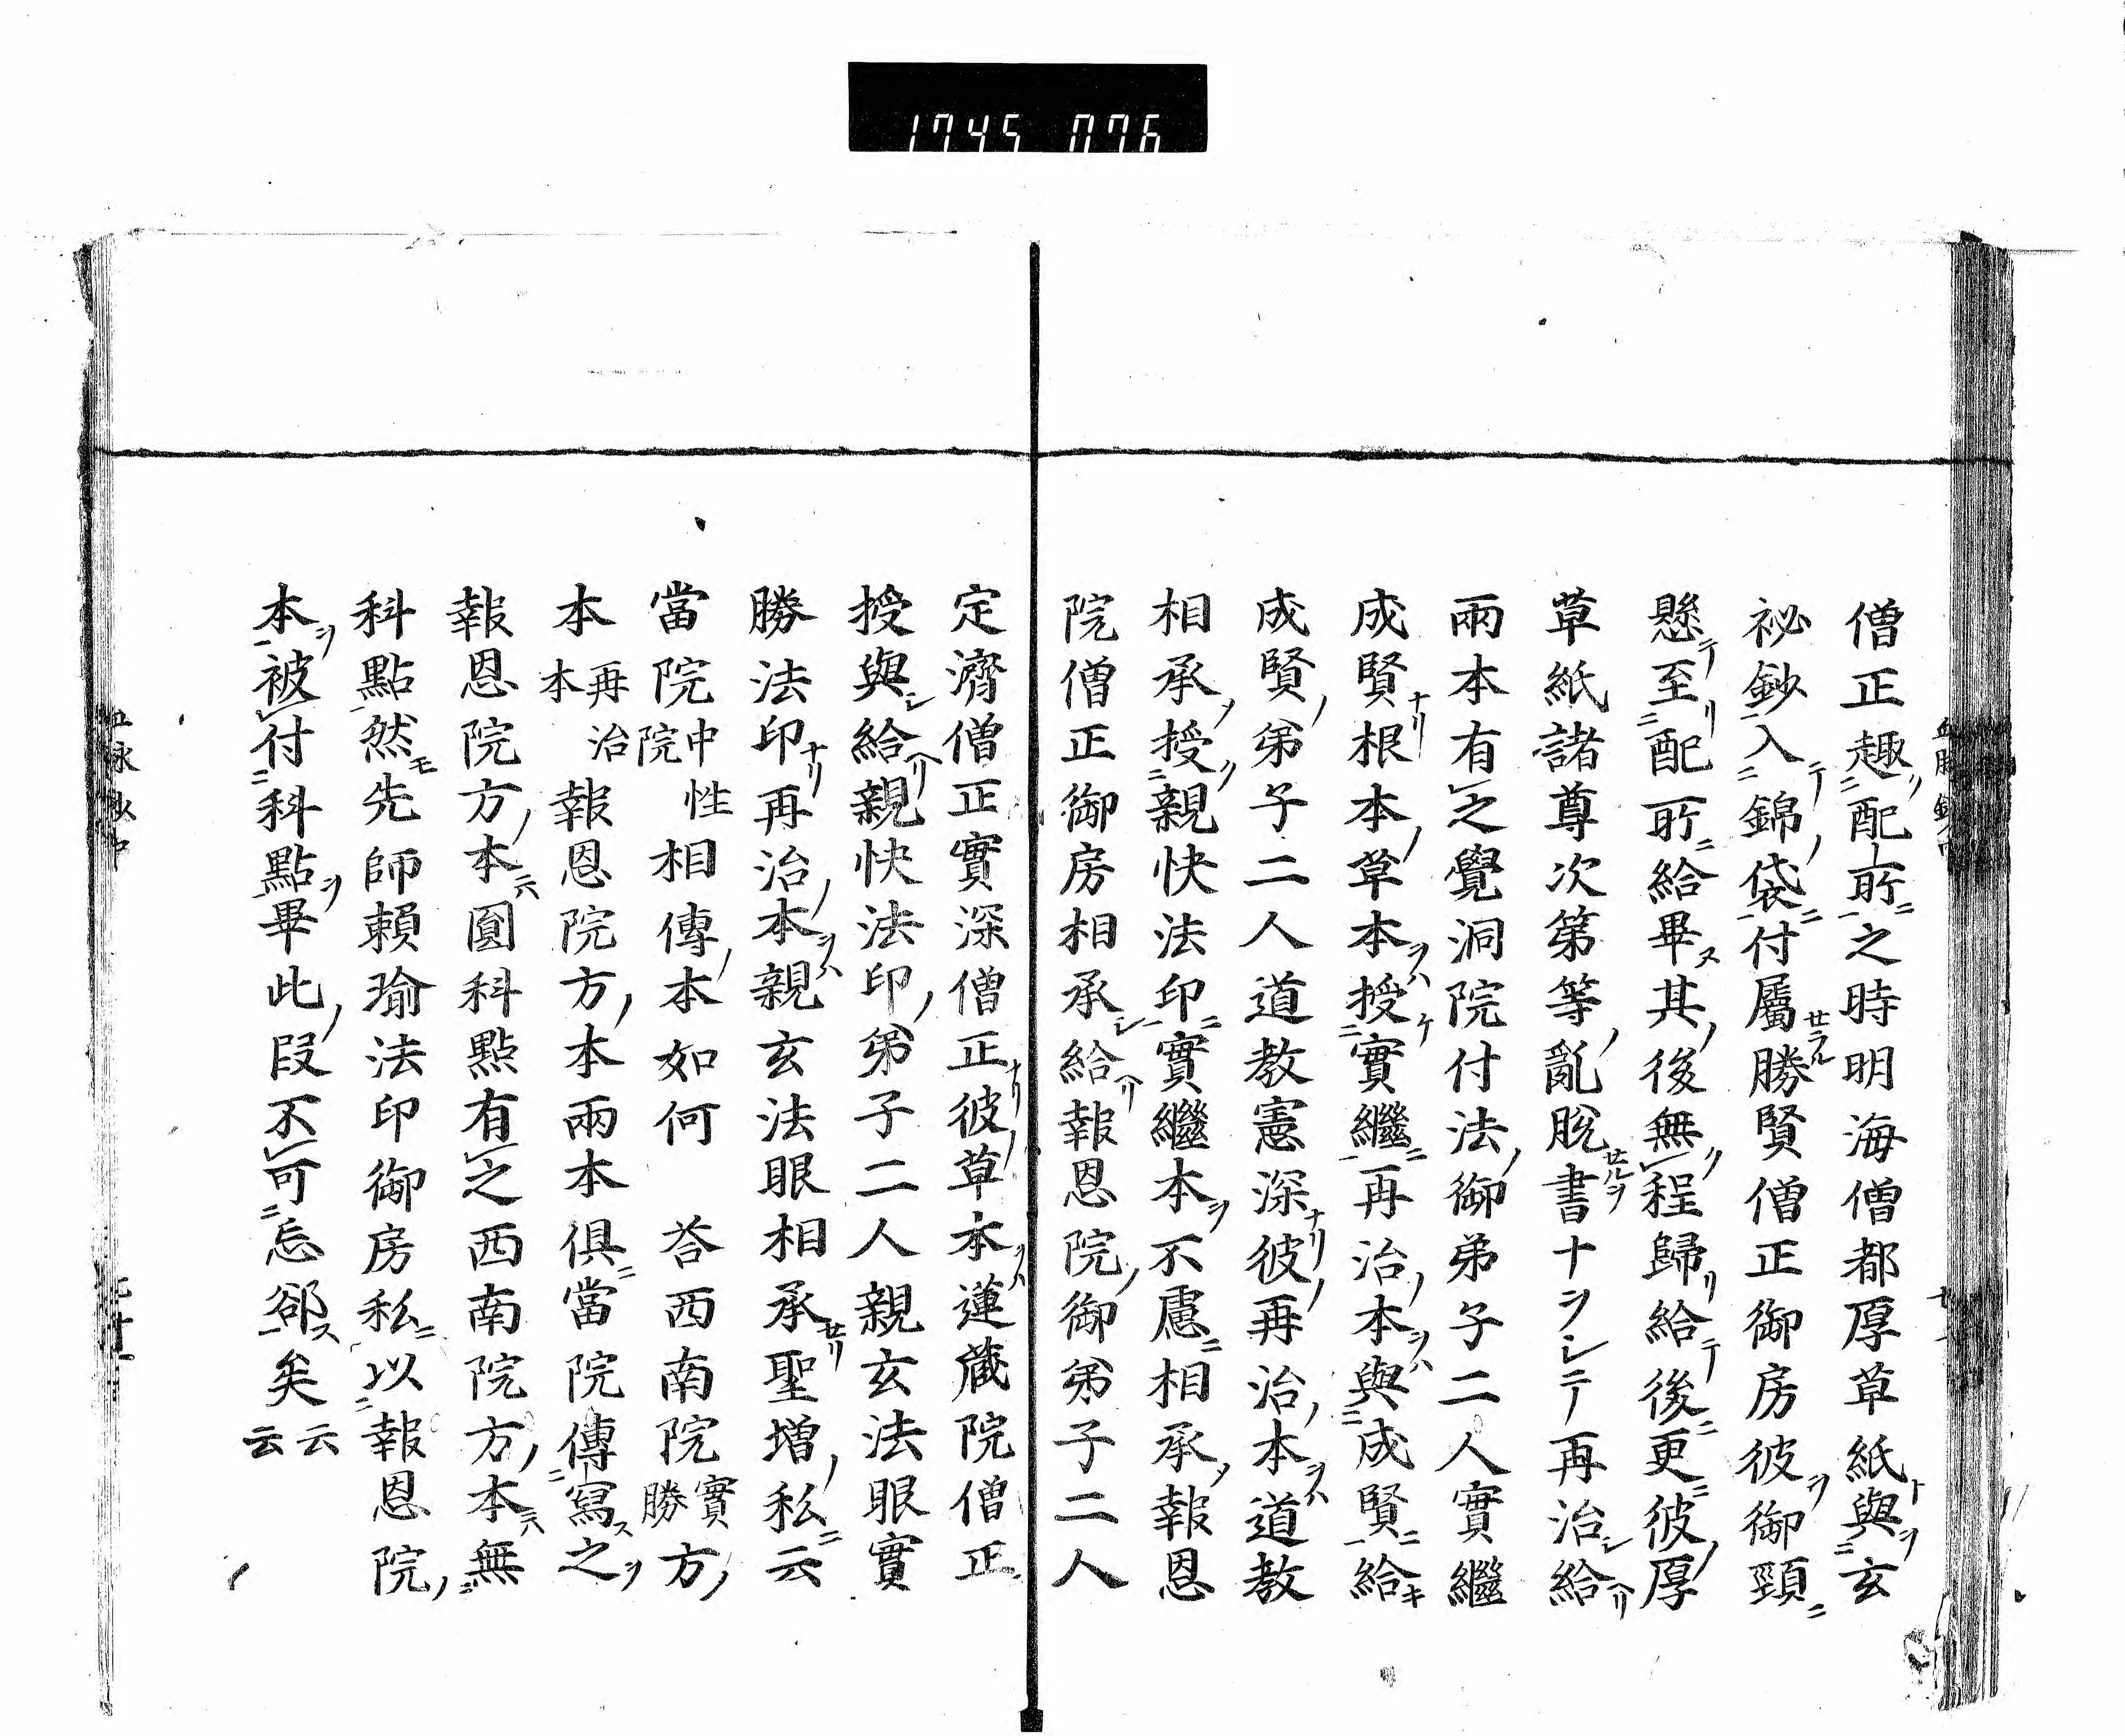 1745 076
僧正趣配所之時明海僧都厚草紙與玄
祕鈔入錦袋付屬勝賢僧正御房彼御頸
懸至配所給畢其後無程歸給後更彼厚
草紙諸尊次第等亂脫書ナヲシテ再治給
兩本有之覺洞院付法御弟子二人實繼
成賢根本草本授實繼再治本與成賢給
成賢弟子二人道教憲深彼再治本道教
相承授親快法印實繼本不慮相承報恩
院僧正御房相承給報恩院御弟子二人
定濟僧正實深僧正彼草本蓮藏院僧正
授與給親快法印弟子二人親玄法眼實
勝法印再治本親玄法眼相承聖增私云
當院中性院相傳本如何 答西南院實勝方
本再治本報恩院方本兩本俱當院傳寫之
報恩院方本圓科點有之西南院方本無
科點然先師賴瑜法印御房私以報恩院
本被付科點畢此段不可忘卻矣云云